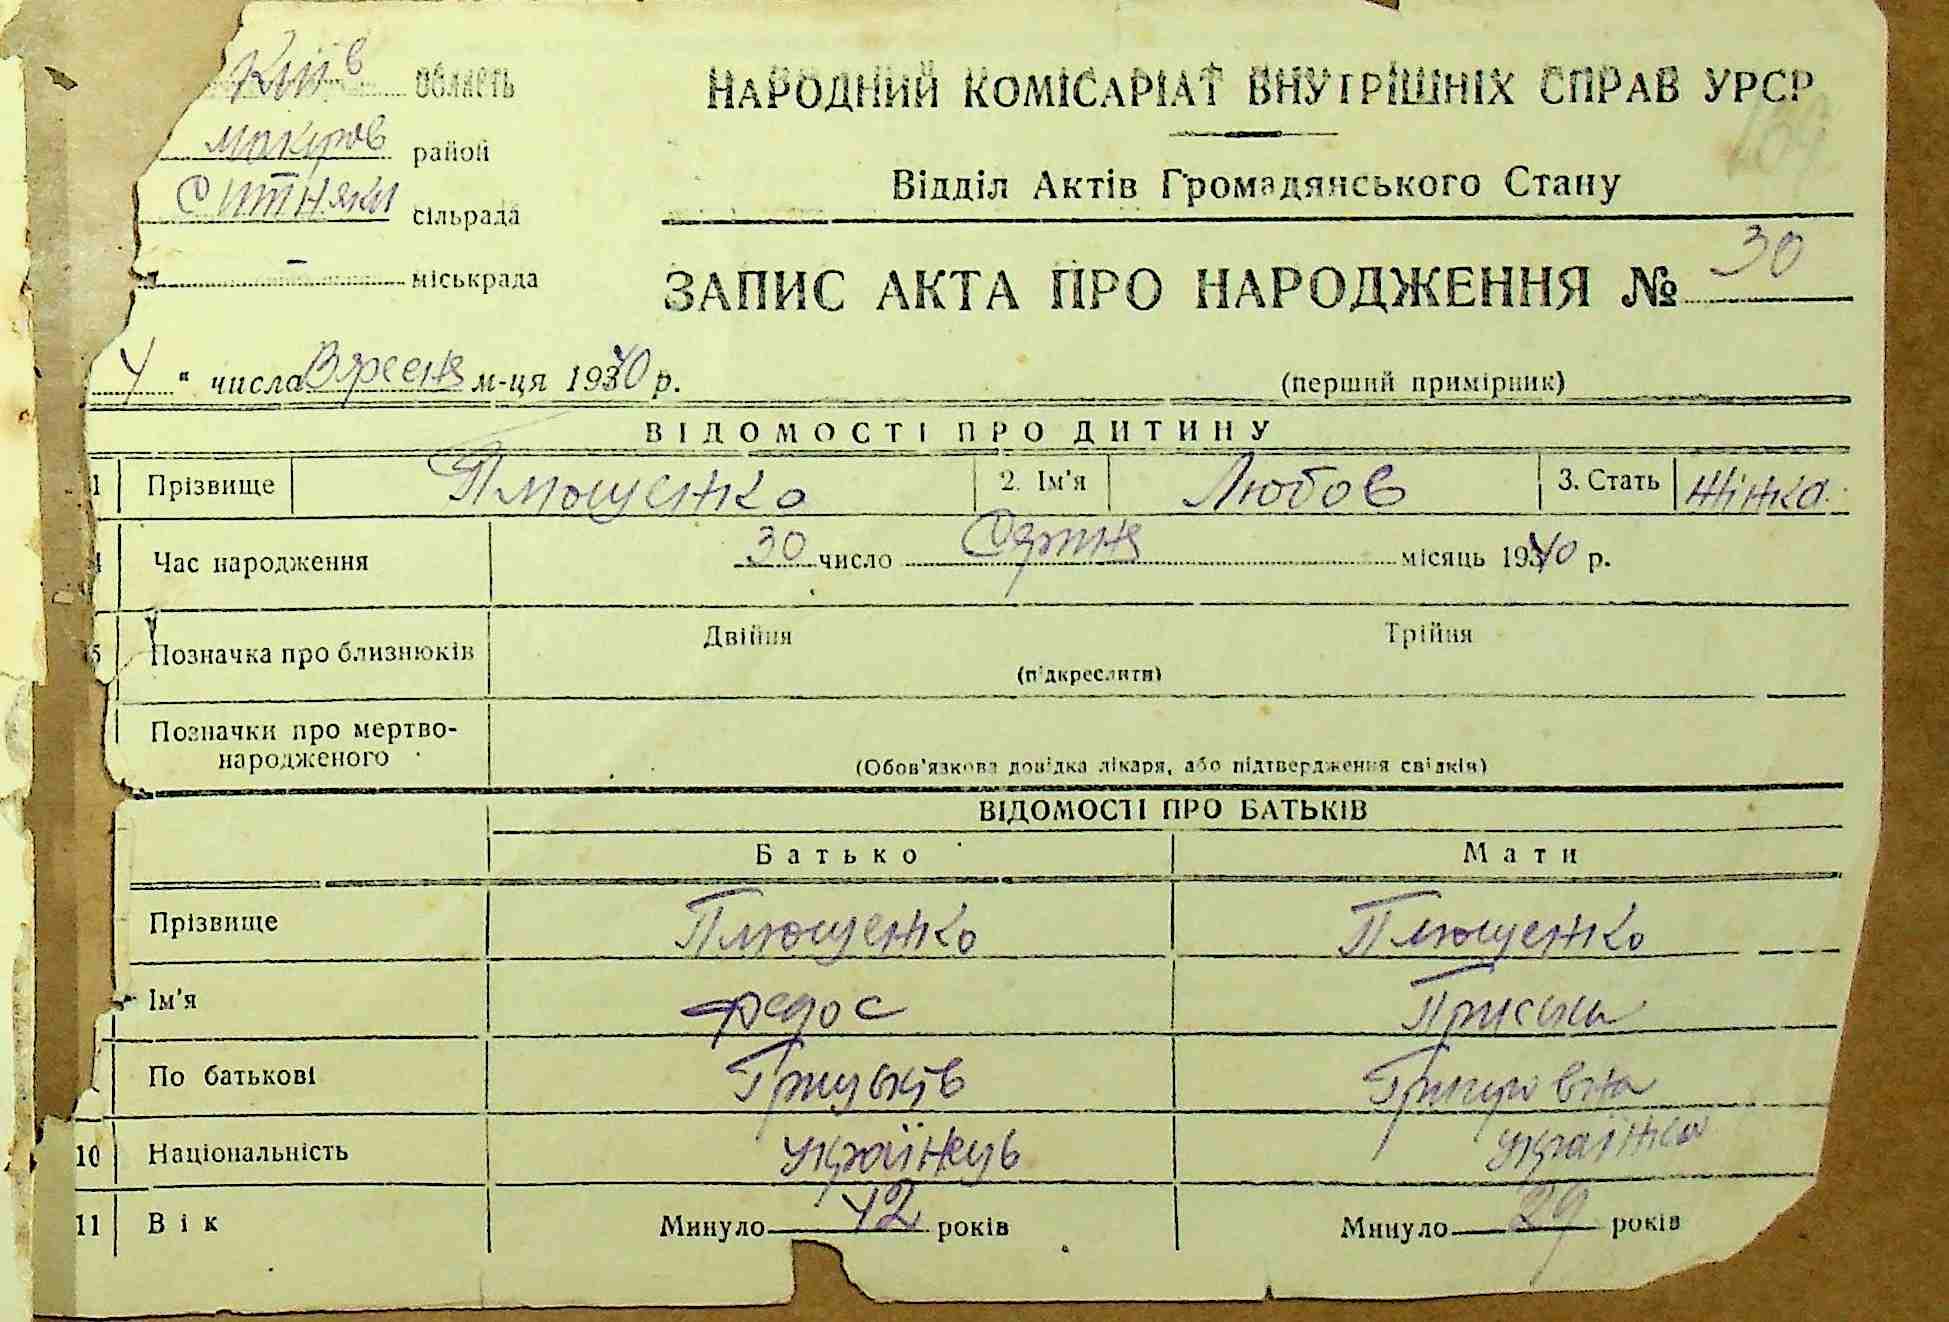 Київ область
НАРОДНИЙ КОМІСАРІАТ ВНУТРІШНІХ СПРАВ УРСР
Макурів район
139
Ситняки сільрада
Відділ Актів Громадянського Стану
— міськрада
ЗАПИС АКТА ПРО НАРОДЖЕННЯ № 30
4 " числа Вресня м-ця 1940 р. (перший примірник)
ВІДОМОСТІ ПРО ДИТИНУ
1 Прізвище Плющенко 2. Ім'я Любов 3. Стать Жінка
4 Час народження 30 число Серпня місяць 1940 р.
5 Позначка про близнюків Двійня Трійня
(підкреслити)
Позначки про мертво-
народженого (Обов'язкова довідка лікаря, або підтвердження свідків)
ВІДОМОСТІ ПРО БАТЬКІВ
Батько Мати
Прізвище Плющенко Плющенко
Ім'я Федос Приська
По батькові Грицьків
10 Національність українець українка
11 Вік Минуло 42 років Минуло 29 років